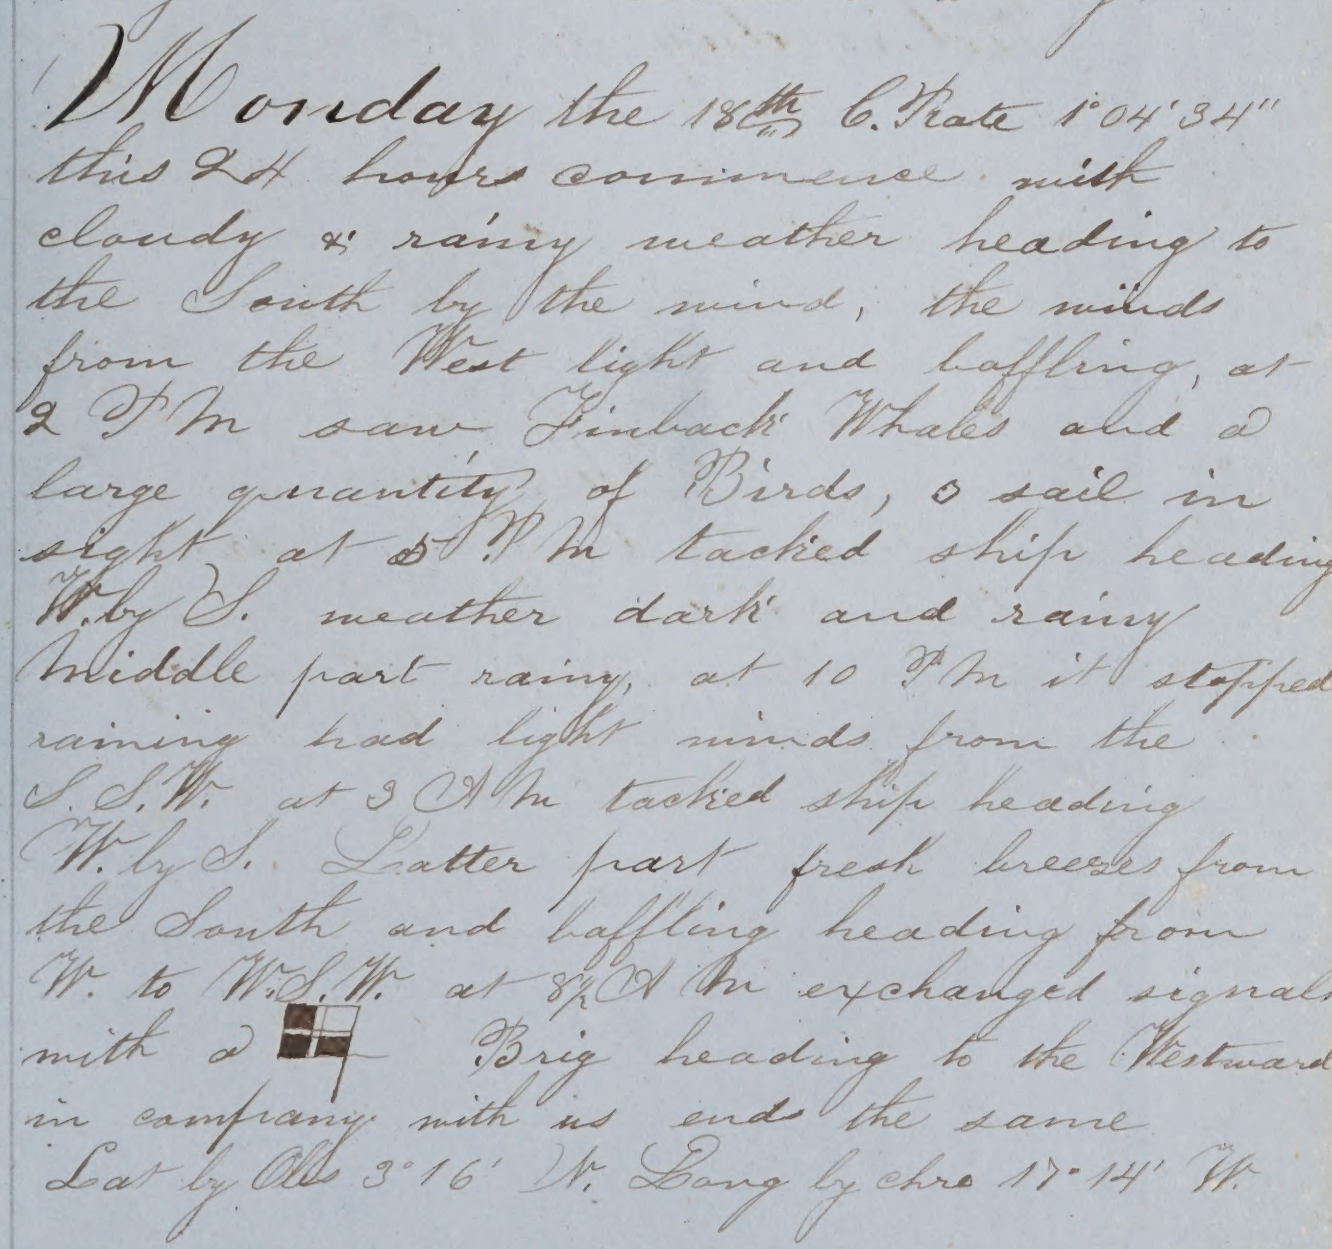 Monday the 18th C. Rate 1° 04' 34"
this 24 hours commence with
cloudy & rainy weather heading to
the South by the wind, the winds
from the West light and baffling, at
2 P M saw Finback Whales and a
large quantity of Birds, 3 sail in
sight at 5 P M tacked ship heading
W. by S. weather dark and rainy
Middle part rainy, at 10 P M it stopped
raining had light winds from the
S. S. W. at 3 A M tacked ship heading
W. by S. Latter part fresh breezes from
the South and baffling heading from
W. to W. S. W. at 8½ A M exchanged signals
with a Brig heading to the Westward
in company with us ends the same
Lat by Obs 3° 16' N. Long by chro 17° 14' W.